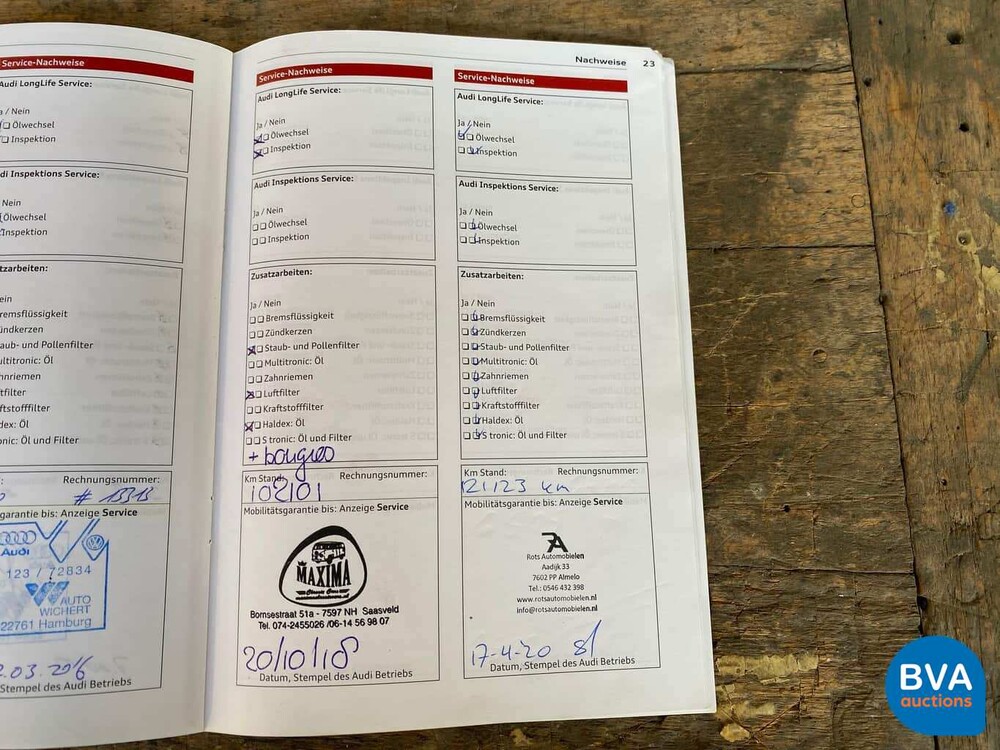 Nachweise 23
Service-Nachweise
Audi LongLife Service:
a / Nein
Ölwechsel
Inspektion
di Inspektions Service:
Nein
Ölwechsel
Inspektion
tzarbeiten:
ein
Bremsflüssigkeit
ündkerzen
taub- und Pollenfilter
ultitronic: Öl
ahnriemen
ftfilter
aftstofffilter
ldex: Öl
ronic: Öl und Filter
Rechnungsnummer:
garantie bis: Anzeige Service
Audi
123 / 72834
AUTO
WICHERT
22761 Hamburg
Stempel des Audi Betriebs
Service-Nachweise
Audi LongLife Service:
Ja / Nein
Ölwechsel
Inspektion
Audi Inspektions Service:
Ja / Nein
Ölwechsel
Inspektion
Zusatzarbeiten:
Ja / Nein
Bremsflüssigkeit
Zündkerzen
Staub- und Pollenfilter
Multitronic: Öl
Zahnriemen
Luftfilter
Kraftstofffilter
Haldex: Öl
S tronic: Öl und Filter
Km Stand: Rechnungsnummer:
102101
Mobilitätsgarantie bis: Anzeige Service
MAXIMA
Classic Cars
Bornsestraat 51a - 7597 NH Saasveld
Tel. 074-2455026 /06-14 56 98 07
20/10/18
Datum, Stempel des Audi Betriebs
Service-Nachweise
Audi LongLife Service:
Ja / Nein
Ölwechsel
Inspektion
Audi Inspektions Service:
Ja / Nein
Ölwechsel
Inspektion
Zusatzarbeiten:
Ja / Nein
Bremsflüssigkeit
Zündkerzen
Staub- und Pollenfilter
Multitronic: Öl
Zahnriemen
Luftfilter
Kraftstofffilter
Haldex: Öl
S tronic: Öl und Filter
Km Stand: Rechnungsnummer:
121123 km
Mobilitätsgarantie bis: Anzeige Service
Rots Automobielen
Aadijk 33
7602 PP Almelo
Tel.: 0546 432 398
www.rotsautomobielen.nl
info@rotsautomobielen.nl
17-4-20
Datum, Stempel des Audi Betriebs
BVA
auctions